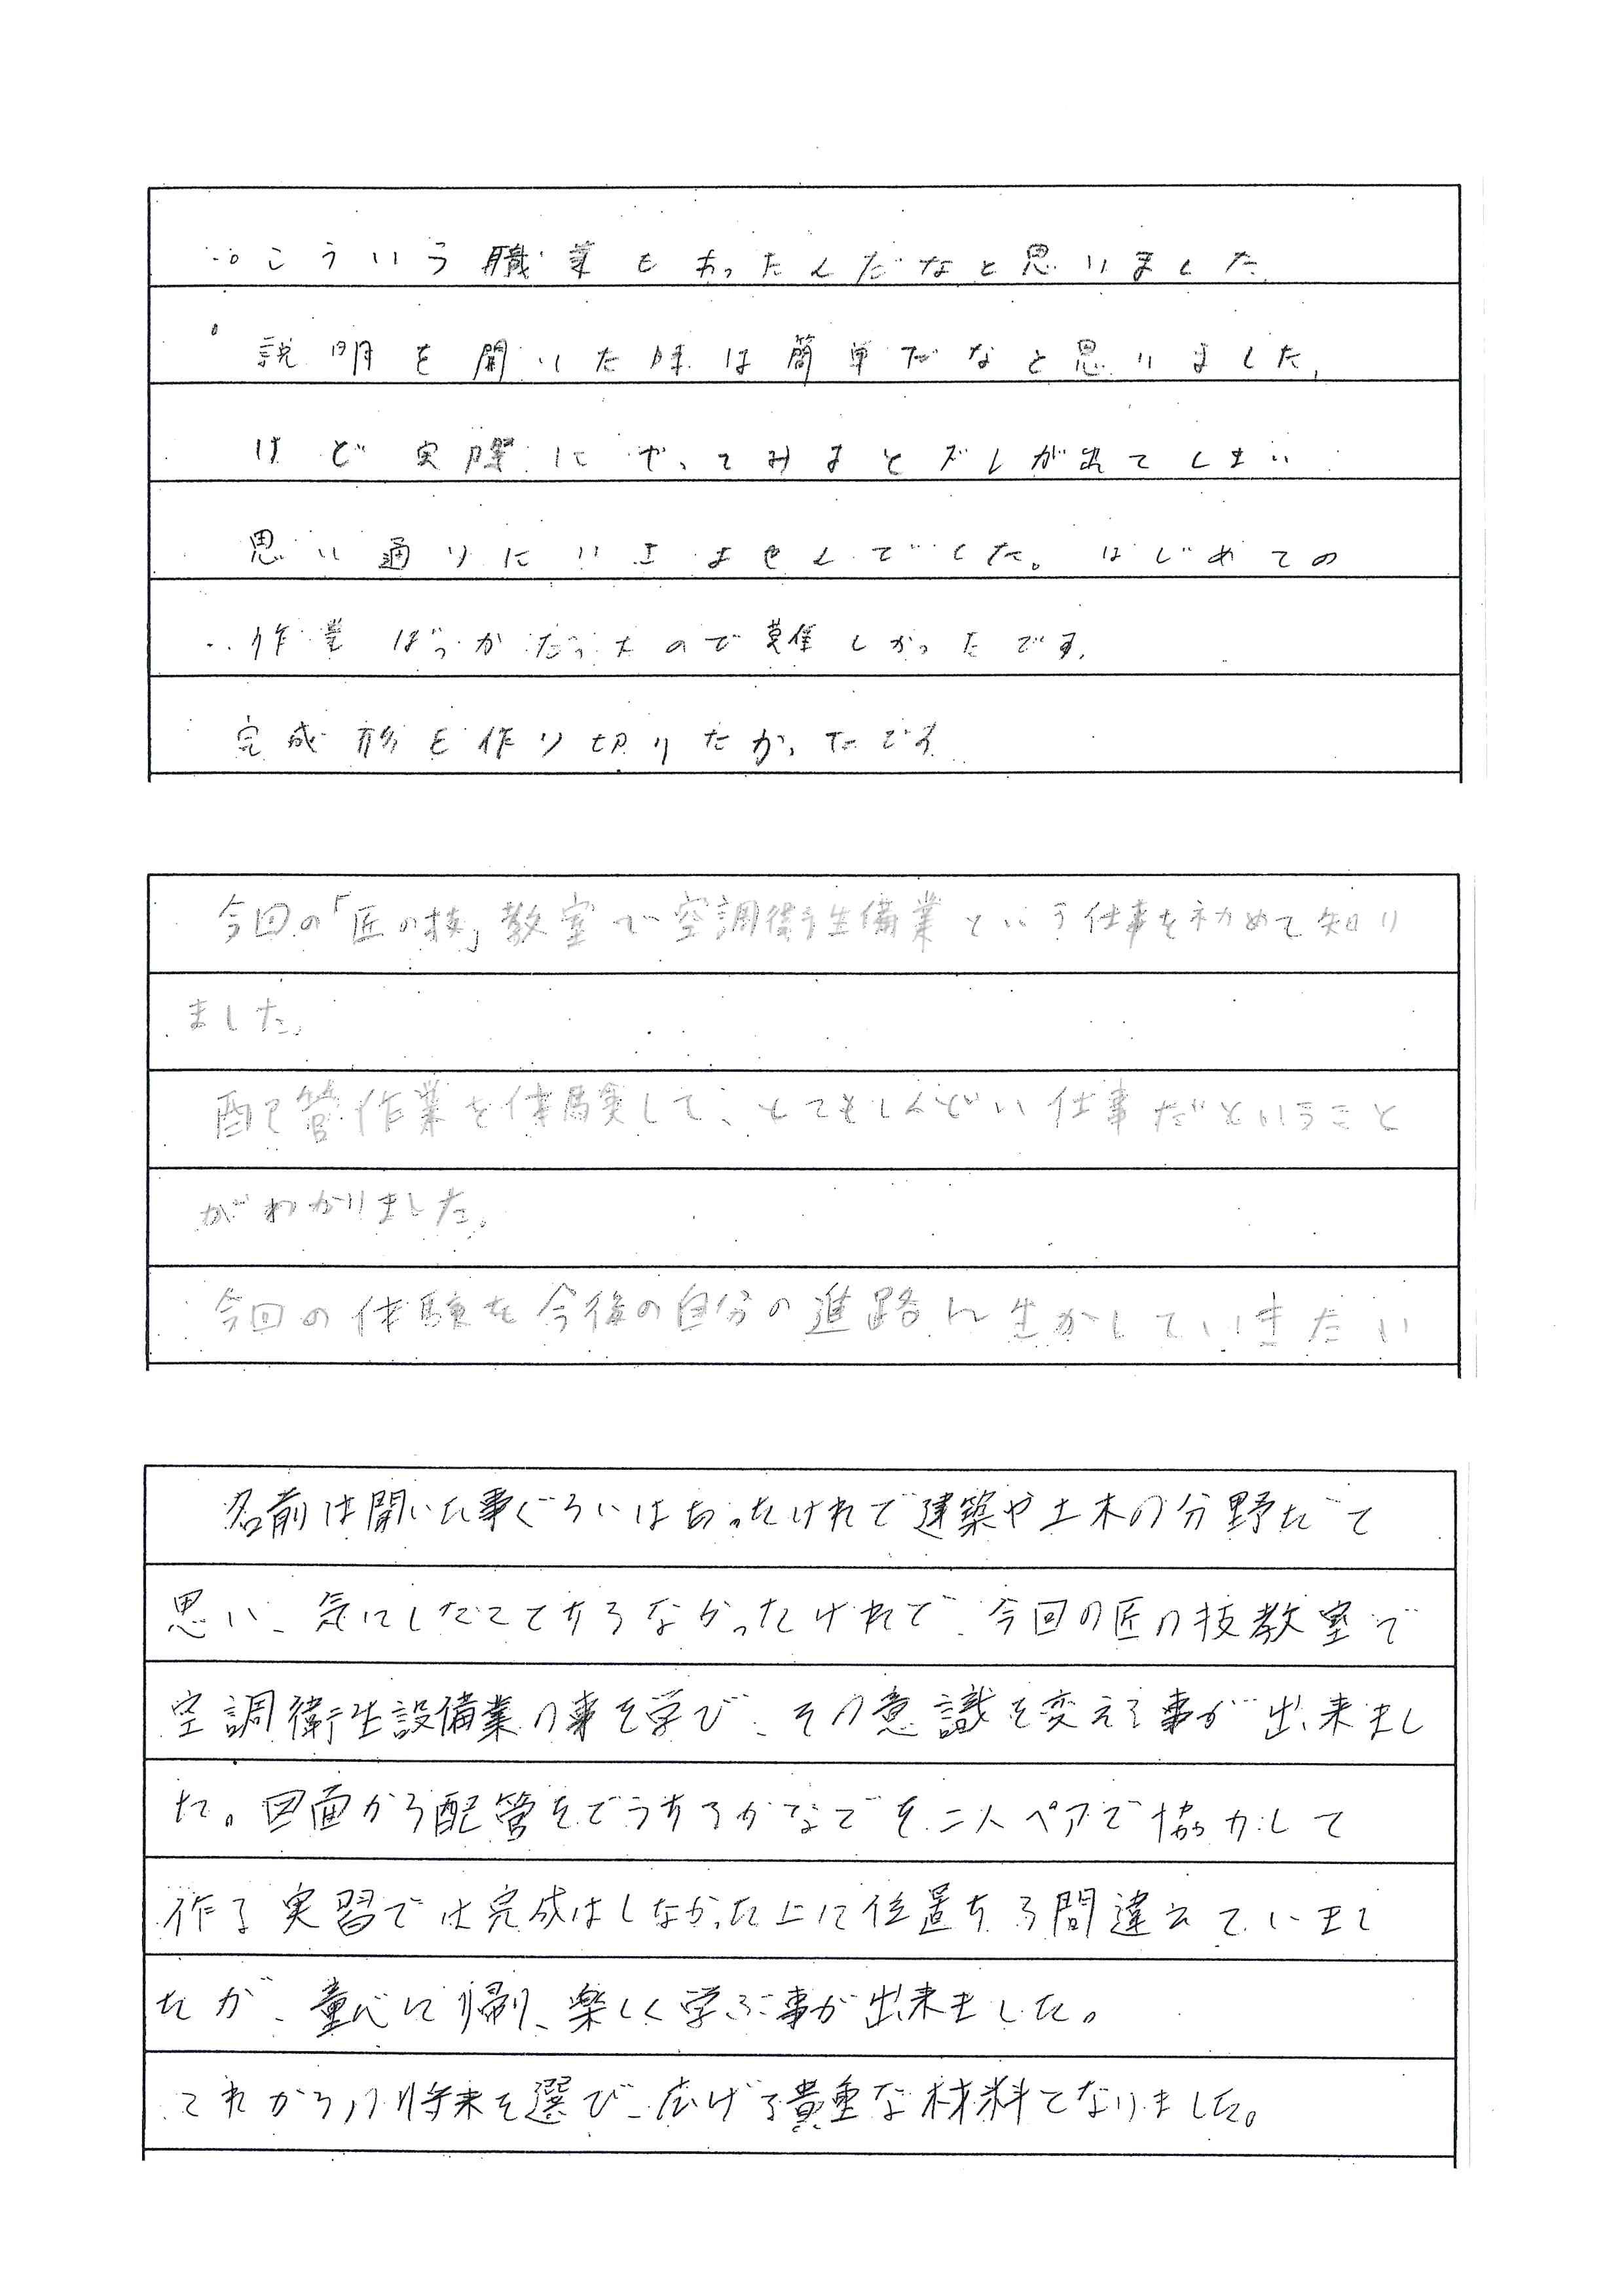 ・こういう職業もあったんだなと思いました
・説明を聞いた時は簡単だなと思いました、
けど実際にやってみるとズレが出てしまい
思い通りにいきませんでした。はじめての
作業ばっかだったので難しかったです、
完成形を作り切りたかったです
今回の「匠の技」教室で空調衛生備業という仕事を初めて知り
ました。
配管作業を体験して、とてもしんどい仕事だということ
がわかりました。
今回の体験を今後の自分の進路に生かしていきたい
名前は聞いた事ぐらいはあったけれど建築や土木の分野だと
思い、気にしたことすらなかったけれど、今回の匠の技教室で
空調衛生設備業の事を学び、その意識を変える事が出来まし
た。図面から配管をどうするかなどを二人ペアで協力して
作る実習では完成はしなかった上に位置すら間違えていまし
たが、童心に帰り、楽しく学ぶ事が出来ました。
これからの将来を選び、広げる貴重な材料となりました。